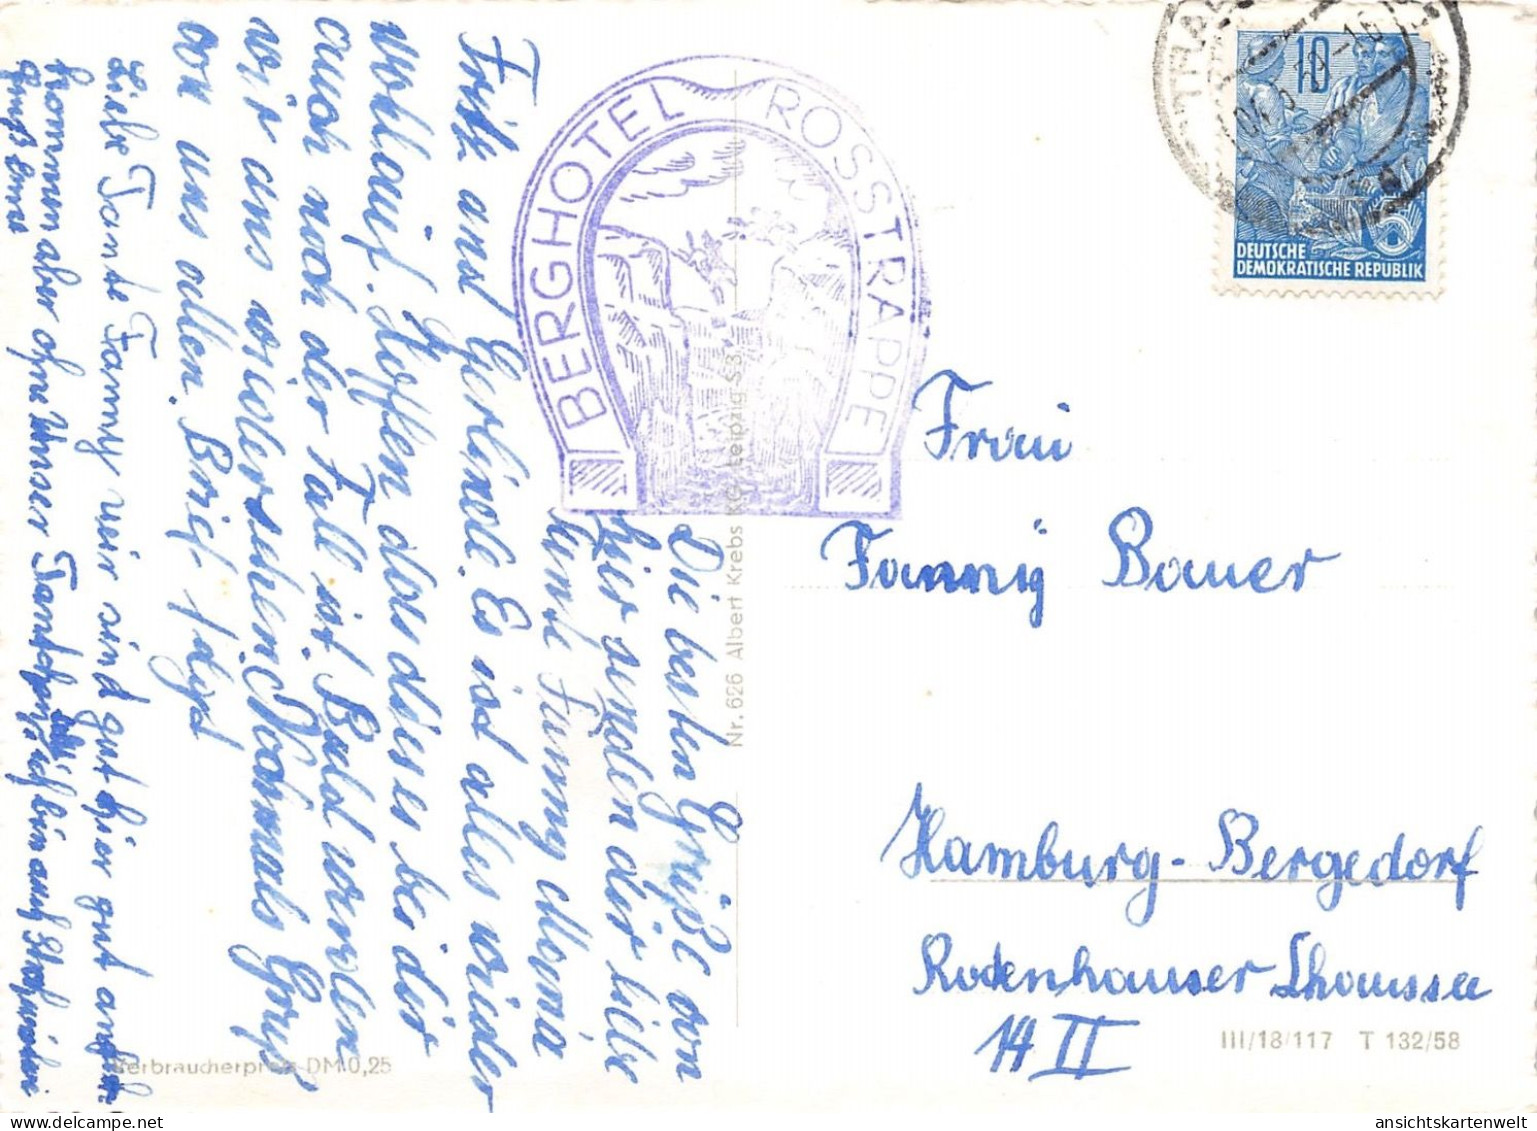 Die besten Grüße von
hier senden dir liebe
Tante Fanny Mama
Fritz und Gerlinde. Es ist alles wieder
wohlauf. Hoffen das dieses bei dir
auch noch der Fall ist. Bald werden
wir uns wiedersehen. Nochmals Gruß
von uns allen. Brief folgt
Liebe Tante Fanny wir sind gut hier gut
kommen aber ohne unser Tantchen, ich bin auch
Gruß
BERGHOTEL ROSSTRAPPE
Nr. 626 Albert Krebs KG, Leipzig S3
10
DEUTSCHE
DEMOKRATISCHE REPUBLIK
Frau
Fanny Bauer
Hamburg-Bergedorf
Rodenhauser Chaussee
14 II
III/18/117 T 132/58
Verbraucherpreis DM 0,25
ansichtskartenwelt